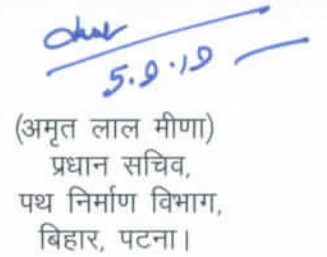 5.9.19
(अमृत लाल मीणा)
प्रधान सचिव,
पथ निर्माण विभाग,
बिहार, पटना।